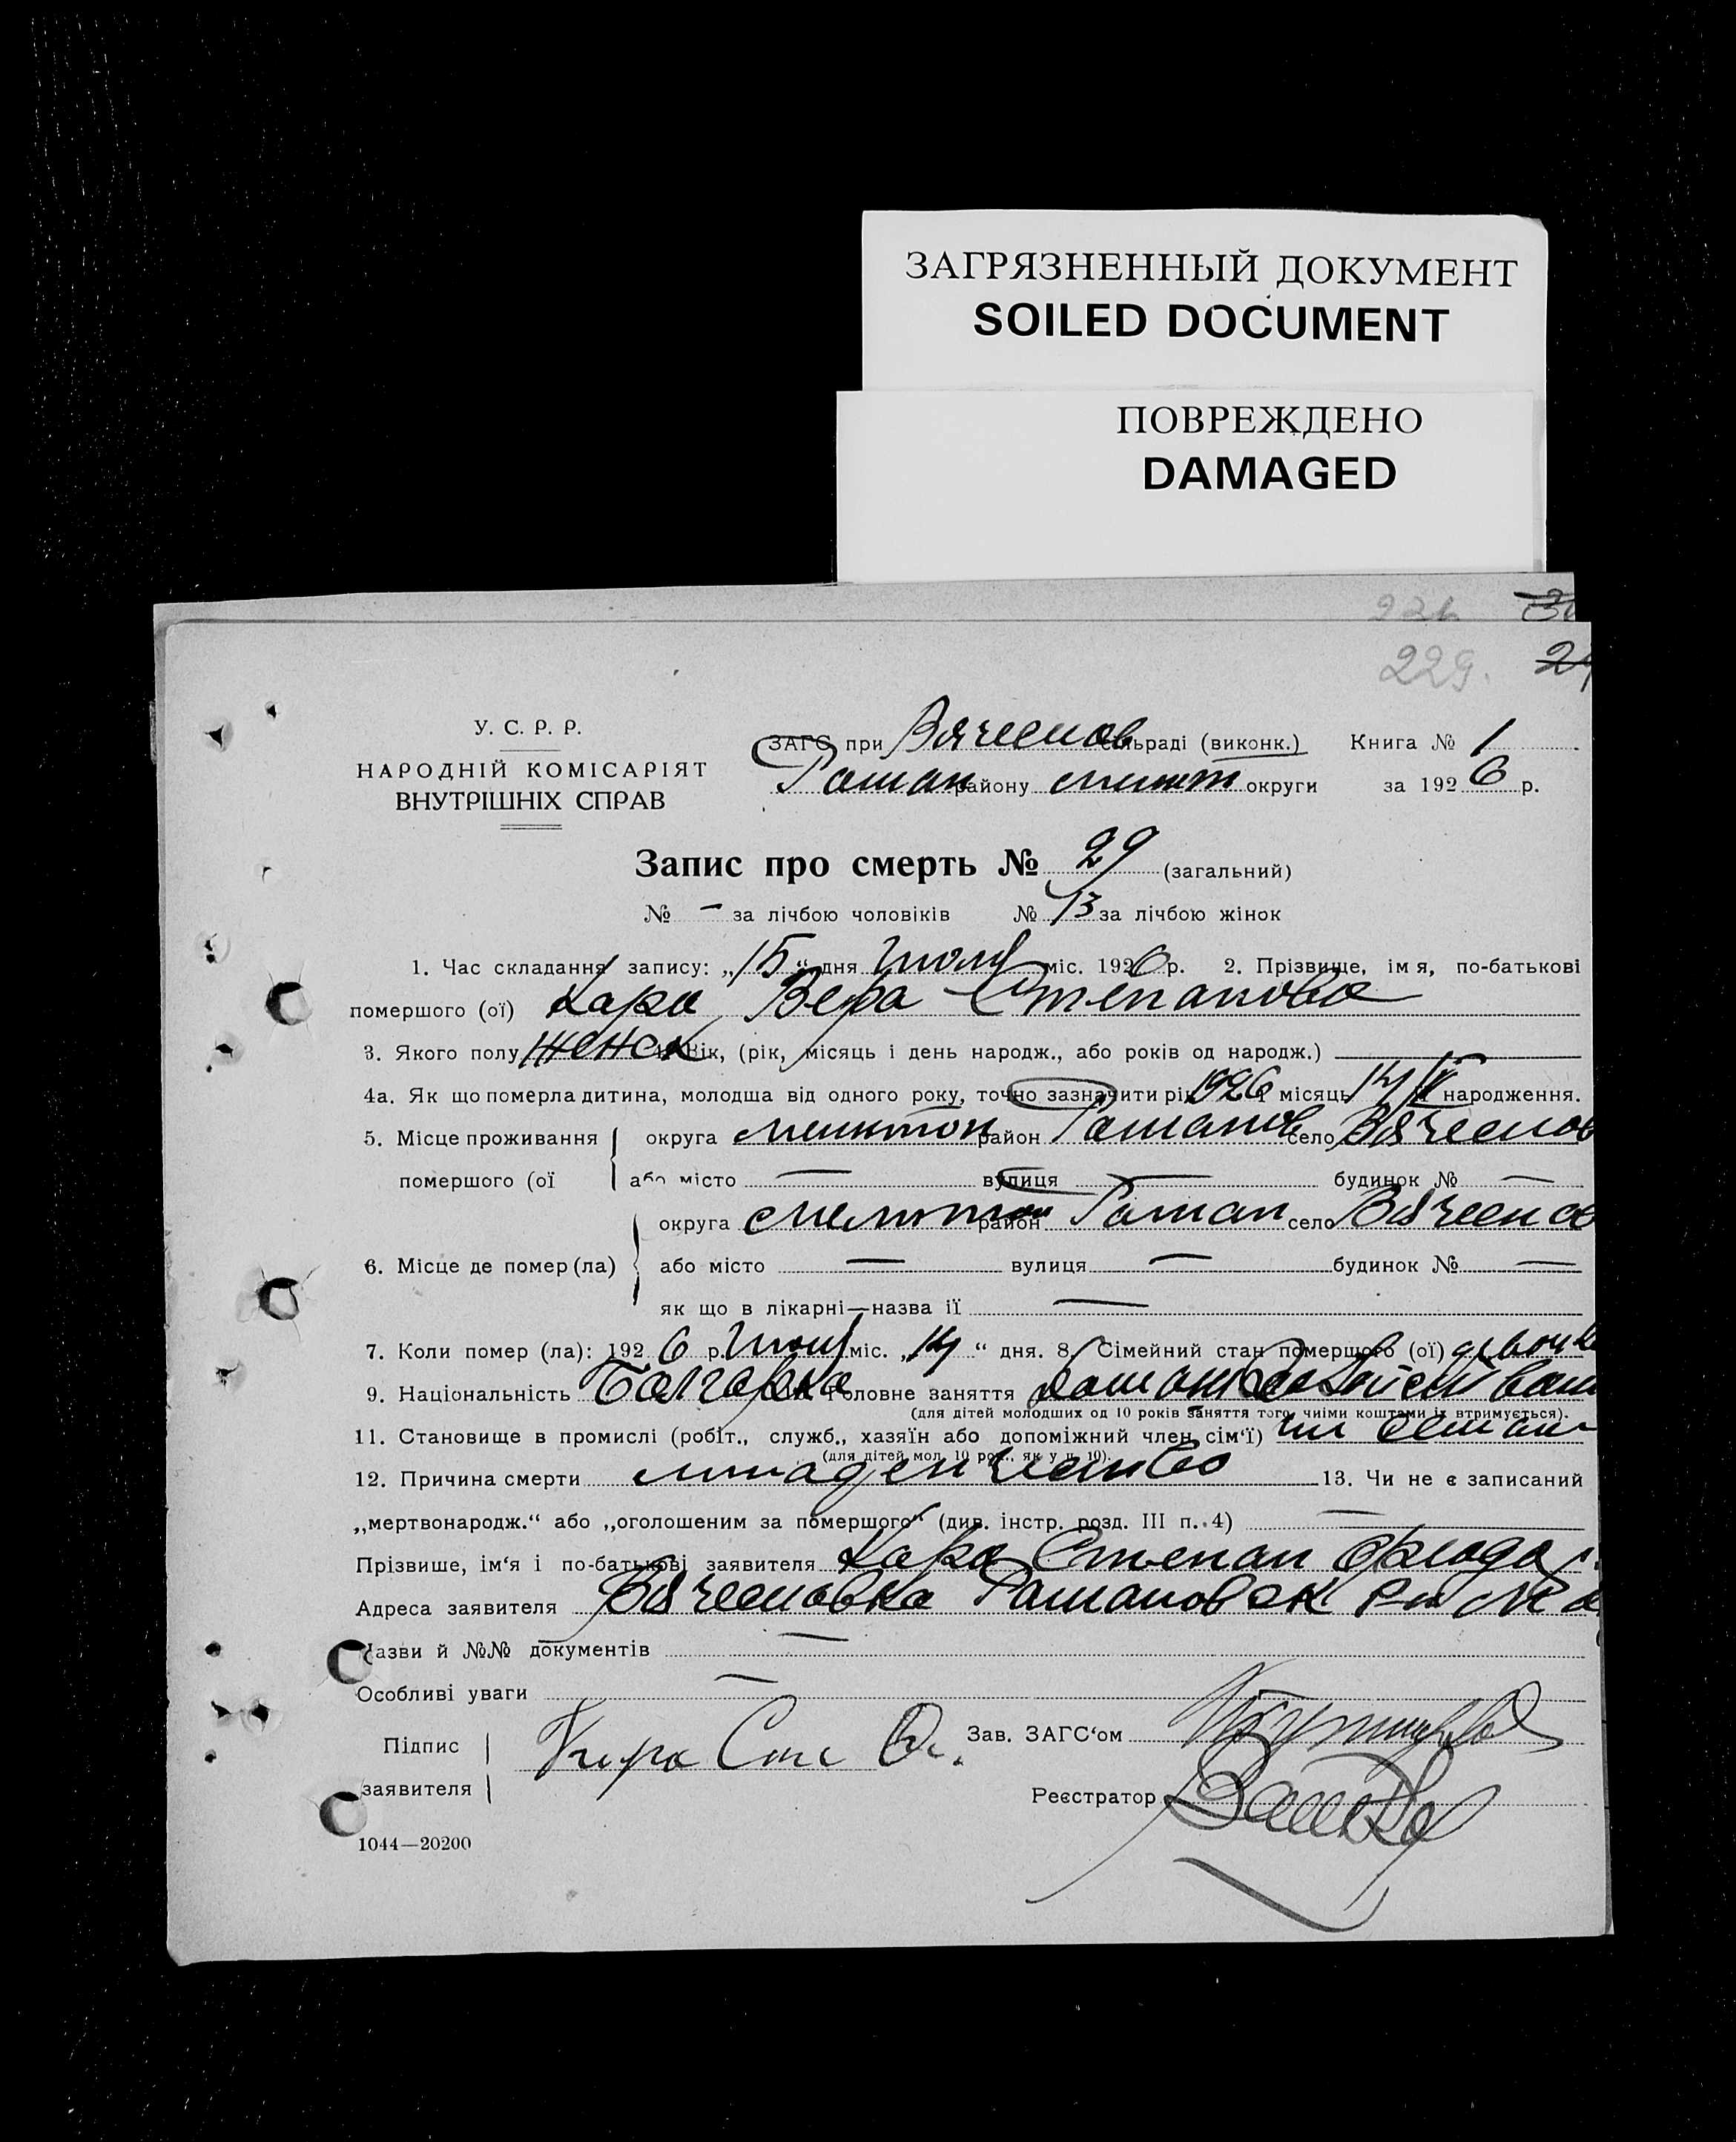 ЗАГРЯЗНЕННЫЙ ДОКУМЕНТ
SOILED DOCUMENT
ПОВРЕЖДЕНО
DAMAGED
229.
У. С. Р. Р.
НАРОДНІЙ КОМІСАРІЯТ
ВНУТРІШНІХ СПРАВ
ЗАГС при Вячеслов сільраді (виконк.) Книга № 1
Роман району мелит округи за 1926 р.
Запис про смерть № 29 (загальний)
№ — за лічбою чоловіків № 13 за лічбою жінок
1. Час складання запису: „15“ дня Июля міс. 1926 р. 2. Прізвище, імя, по-батькові
помершого (ої) Кара Вера Степановна
3. Якого полу женск 4. Вік, (рік, місяць і день народж., або років од народж.) —
4а. Як що померла дитина, молодша від одного року, точно зазначити рік 1926 і місяць 14/ народження.
5. Місце проживання помершого (ої округа мелитоп район Романов село Вячеслов
або місто — вулиця — будинок № —
6. Місце де помер (ла) округа мелитоп район Роман село Вячеслов
або місто — вулиця — будинок № —
як що в лікарні—назва її —
7. Коли помер (ла): 1926 р. Июля міс. „14“ дня. 8. Сімейний стан помершого (ої) девочка
9. Національність Болгарка головне заняття
(для дітей молодших од 10 років заняття того, чиїми коштами їх втримується).
11. Становище в промислі (робіт., служб., хазяїн або допоміжний член сім‘ї) чл семьи
(для дітей мол. 10 рок., як у п. 10).
12. Причина смерти младенчество 13. Чи не є записаний
„мертвонародж.“ або „оголошеним за помершого“ (див. інстр. розд. III п. 4) —
Прізвише, ім‘я і по-батькові заявителя Кара Степан
Адреса заявителя Вячеславка Романовск р м
Назви й №№ документів —
Особливі уваги —
Підпис заявителя Кара Сте Зав. ЗАГС‘ом
Реєстратор
1044—20200